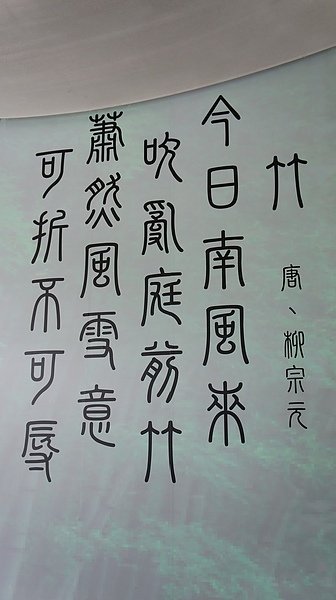 竹
唐、柳宗元
今日南風來
吹亂庭前竹
蕭然風雪意
可折不可辱